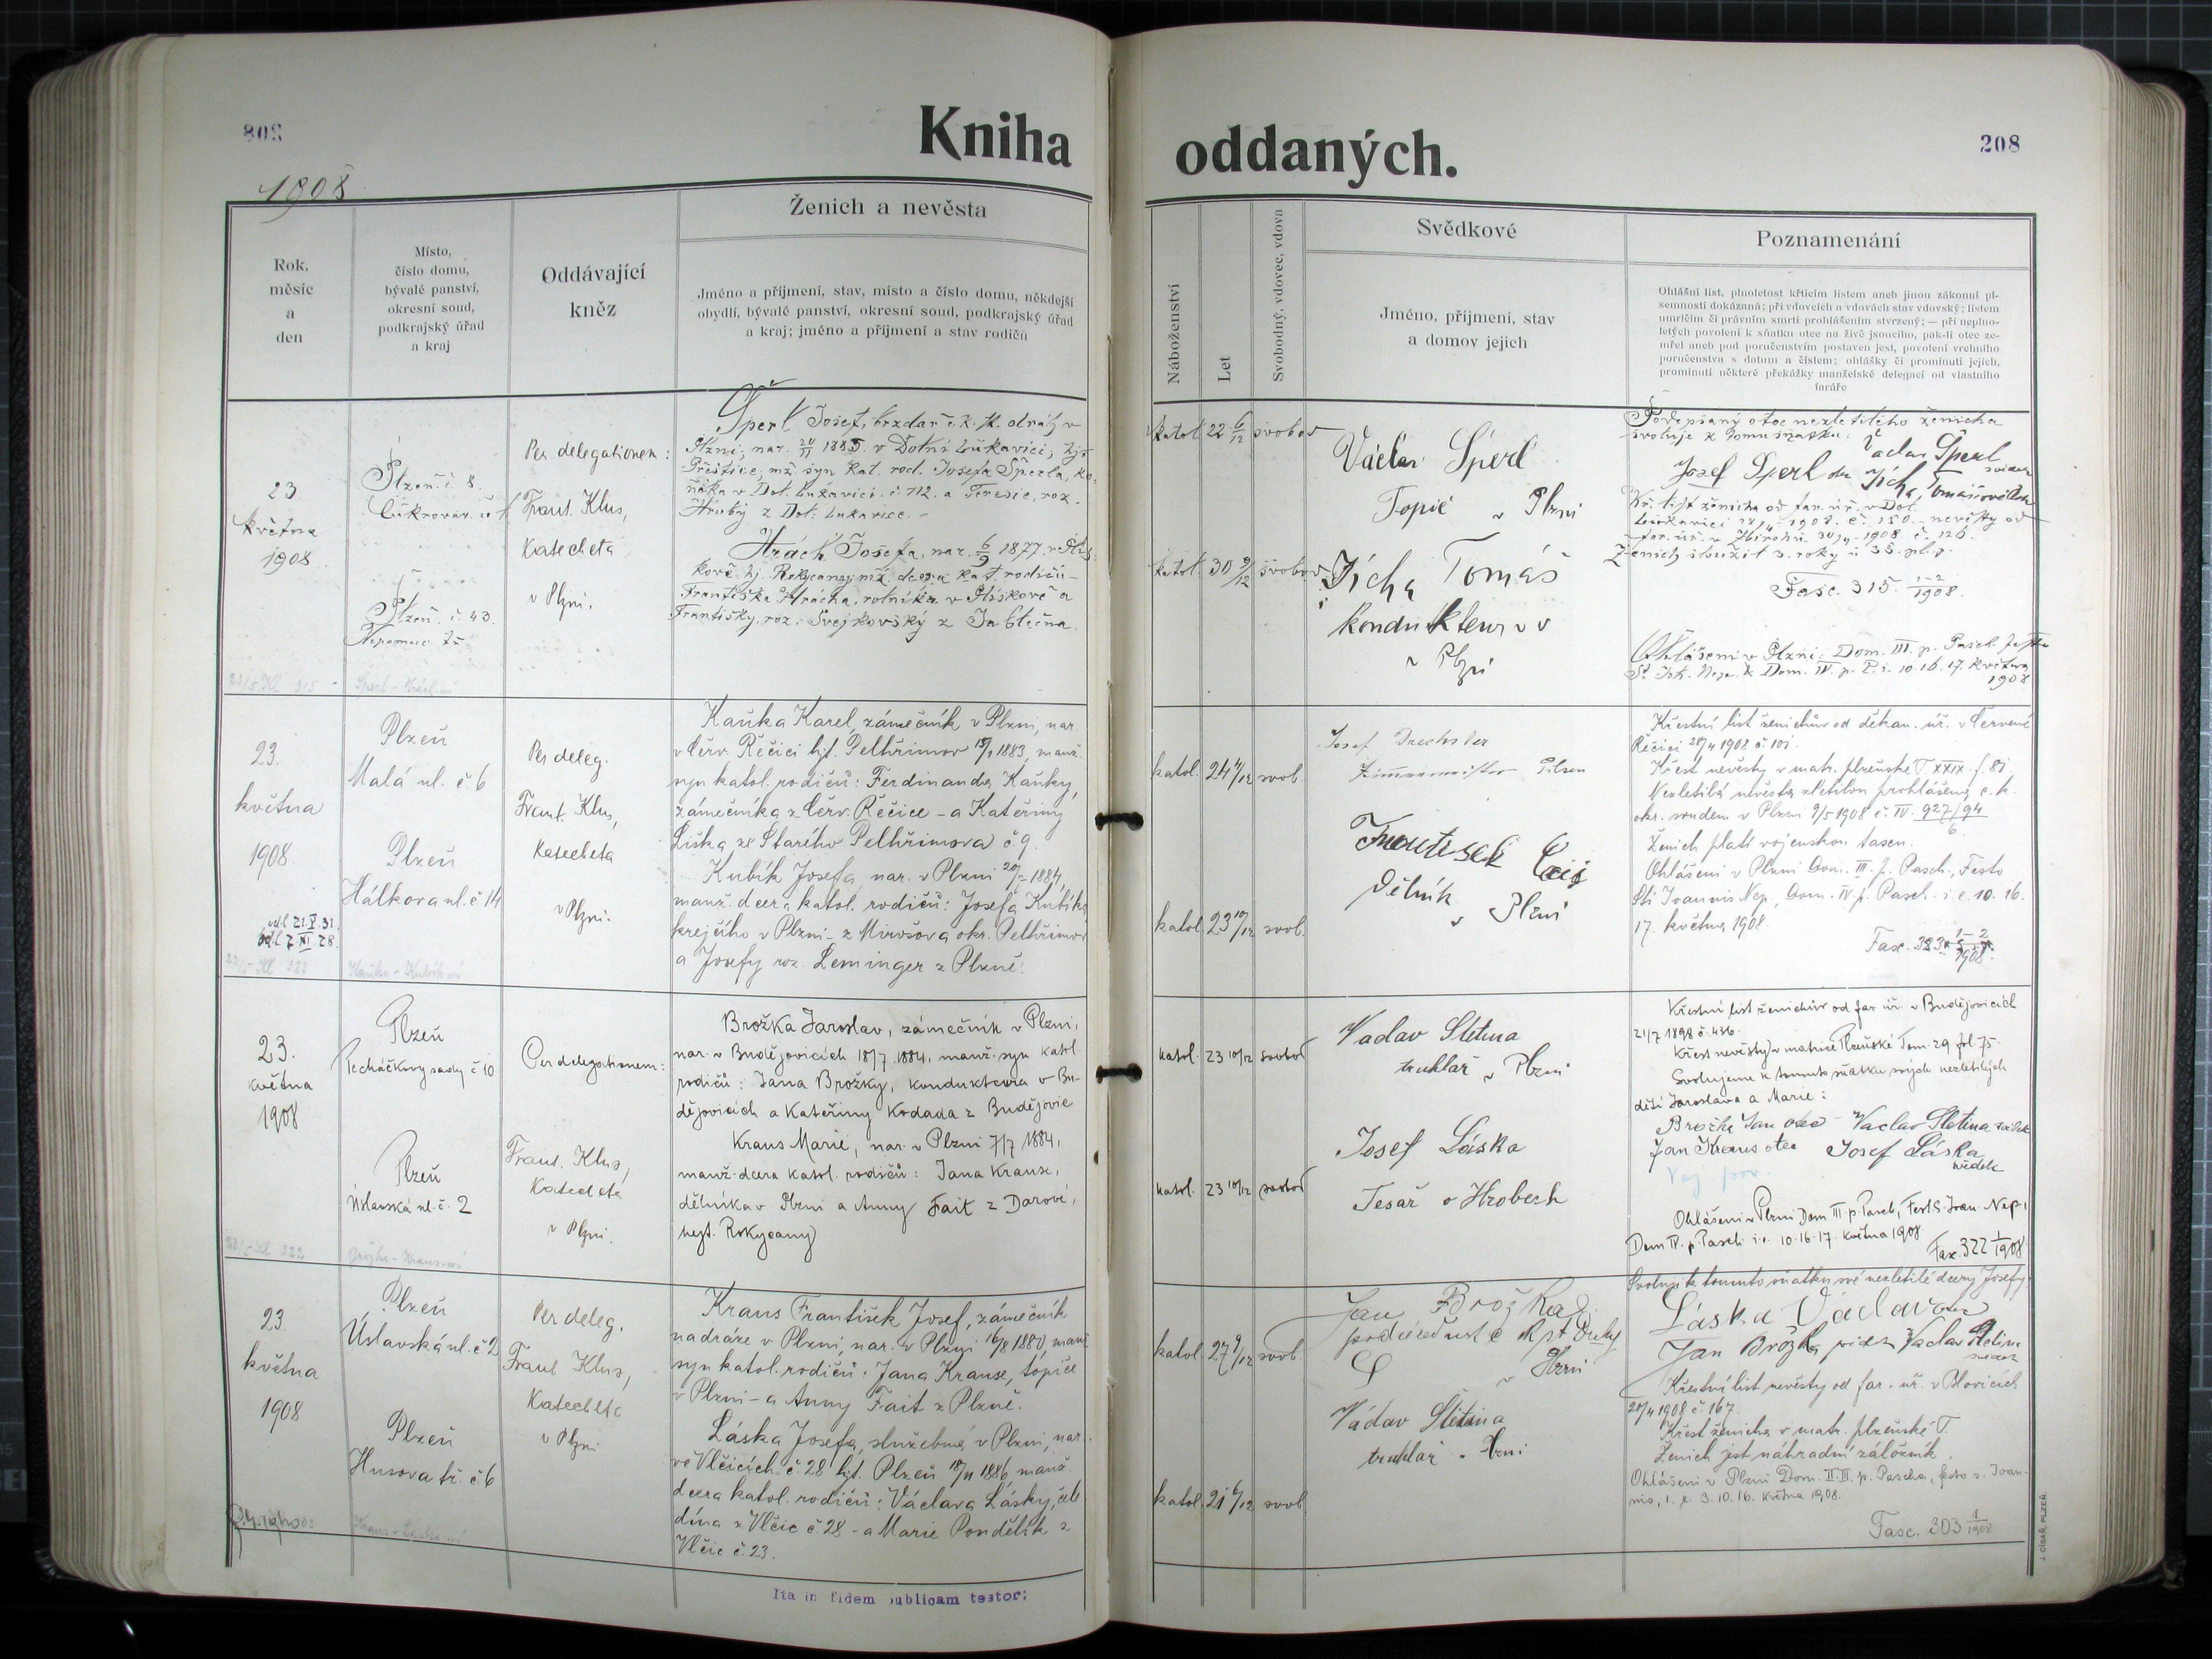 Kniha
oddaných.
208
1908
Rok,
měsíc
a
den
Místo,
číslo domu,
bývalé panství,
okresní soud,
podkrajský úřad
a kraj
Oddávající
kněz
Ženich a nevěsta
Jméno a příjmení, stav, místo a číslo domu, někdejší
obydlí, bývalé panství, okresní soud, podkrajský úřad
a kraj; jméno a příjmení a stav rodičů
Náboženství
Let
Svobodný, vdovec, vdova
Svědkové
Jméno, příjmení, stav
a domov jejich
Poznamenání
Ohlášní list, plnoletost křticím listem aneb jinou zákonní pí-
semností dokázaná; při vdovcích a vdovách stav vdovský; listem
umrlčím či právním smrti prohlášením stvrzený; — při neplno-
letých povolení k sňatku otce na živě jsoucího, pak-li otec ze-
mřel aneb pod poručenstvím postaven jest, povolení vrchního
poručenstva s datum a číslem; ohlášky či prominutí jejich,
prominutí některé překážky manželské delegací od vlastního
faráře
23
května
1908
Plzeň č. 8.
Plzeň č. 43.
Nepomuc. tř.
Per delegationem:
Frant. Klus,
Katecheta
v Plzni.
Šperl Josef, brzdař c. k. st. dráhy v
Plzni, nar. 1885 v Dolní Lukavici, hjt.
Přeštice, mž. syn kat. rod. Josefa Šperla,
v Dol. Lukavici č. 112. a Terezie, roz.
Hrubý z Dol. Lukavice. -
Hrách Josefa, nar. 6/9 1877 v
hj. Rokycany, mž. dcera kat. rodičů -
Františka Hrácha, rolníka v Plískově a
Františky, roz. Švejkovský z Jablečna.
katol. 22 6/12 svobod
katol. 30 8/12 svobod
Václav Šperl
Topič v Plzni
Jícha Tomáš
Kondukteur v
v Plzni
Podepsaný otec nezletilého ženicha
svoluje k tomu sňatku: Václav Šperl
Josef Šperl Jícha Tomáš svědek
Kř. list ženicha od far. úř. v Dol.
Lukavici 1908. č. 150. - nevěsty od
far. úř. v Zbirohu 1908 č. 126.
Ženich sloužil 3 roky u 35. pl. p.
Fasc. 315. 1-2/1908.
Ohlášeni v Plzni: Dom. III. p. Pasch. festo
S. Joh. Nep. & Dom. IV. p. P. i. 10. 16. 17. května
1908
23.
května
1908.
Plzeň
Malá ul. č. 6
Plzeň
Hálkova ul. č. 14
Per deleg.
Frant. Klus,
Katecheta
v Plzni.
Kaňka Karel, zámečník v Plzni, nar.
v Červ. Řečici hjt. Pelhřimov 1883, manž.
syn katol. rodičů: Ferdinanda Kaňky,
zámečníka z Červ. Řečice - a Kateřiny
Liška ze Starého Pelhřimova č. 9.
Kubík Josefa, nar. v Plzni 1884,
manž. dcera katol. rodičů: Josefa Kubíka
krejčího v Plzni - z Mirošova okr. Pelhřimov
a Josefy roz. Leminger z Plzně.
katol. 24 4/12 svob.
katol. 23 10/12 svob.
Josef Drechsler
Zimmermeister Pilsen
Frantisek
Dělník
v Plzni
Křestní list ženichův od děkan. úř. v Červené
Řečici 1908 č. 101.
Křest nevěsty v matr. plzeňské T. XXIX. f. 81
Nezletilá nevěsta zletilou prohlášena c. k.
okr. soudem v Plzni 9/5 1908 č. IV. 927/94
6.
Ženich platí vojenskou taxu.
Ohlášeni v Plzni Dom. III. p. Pasch., Festo
Sti Joannis Nep., Dom. IV p. Pasch. i. e. 10. 16.
17. května 1908
23.
května
1908
Plzeň
Pecháčkovy sady č 10
Plzeň
Úslavská ul. č. 2
Per delegationem:
Frant. Klus,
Katecheta
v Plzni.
Brožka Jaroslav, zámečník v Plzni,
nar. v Budějovicích 18/7 1884, manž. syn katol.
rodičů: Jana Brožky, kondukteura v Bu-
dějovicích a Kateřiny Kodada z Budějovic
Kraus Marie, nar. v Plzni 7/7 1884,
manž. dcera katol. rodičů: Jana Krause,
dělníka v Plzni a Anny Fait z Darové,
hejt. Rokycany
katol. 23 10/12 svobod
katol. 23 10/12 svobod
Vaclav Sletina
truhlář v Plzni
Josef Láska
Tesař v Hrobech
Křestní list ženichův od far. úř. v Budějovicích
21/7 1898 č. 436.
Křest nevěsty v matrice Plzeňské Tom. 29 fol. 75.
Svolujeme k tomuto sňatku svých nezletilých
dětí Jaroslava a Marie:
Brožka Jan otec Vaclav Sletina svědek
Jan Kraus otec Josef Láska
svědek
Ohlášeni v Plzni Dom III. p. Pasch, Fest S. Joan. Nep.,
Dom IV. p. Pasch i. e. 10. 16. 17. května 1908
Fasc. 322 1/1908
23.
května
1908
Plzeň
Úslavská ul. č. 2
Plzeň
Husova tř. č. 6
Per deleg.
Frant Klus,
Katecheta
v Plzni
Kraus František Josef, zámečník
na dráze v Plzni, nar. v Plzni 16/8 1880, manž.
syn katol. rodičů: Jana Krause, topiče
v Plzni - a Anny Fait z Plzně.
Láska Josefa, služebná v Plzni, nar.
ve Vlčicích č. 28 hjt. Plzeň 1886 manž.
dcera katol. rodičů: Václava Lásky, čele
dína z Vlčic č. 28 - a Marie Pondělík z
Vlčic č. 23.
katol. 27 9/12 svob.
katol. 21 6/12 svob.
Jan Brožka
podúředník
v Plzni
Václav Sletina
truhlář v Plzni
Svoluji k tomuto sňatku své nezletilé dcery Josefy.
Láska Václav
Jan Brožka svědek Vaclav Sletina
svědek
Křestní list nevěsty od far. úř. v Blovicích
1908 č. 167.
Křest ženicha v matr. plzeňské T.
Ženich jest náhradní záložník.
Ohlášeni v Plzni Dom. II. III. p. Pascha, festo s. Joan-
nis, i. e. 3. 10. 16. května 1908.
Fasc. 303 1/1908
Ita in fidem publicam testor:
J. CÍSAŘ, PLZEŇ.